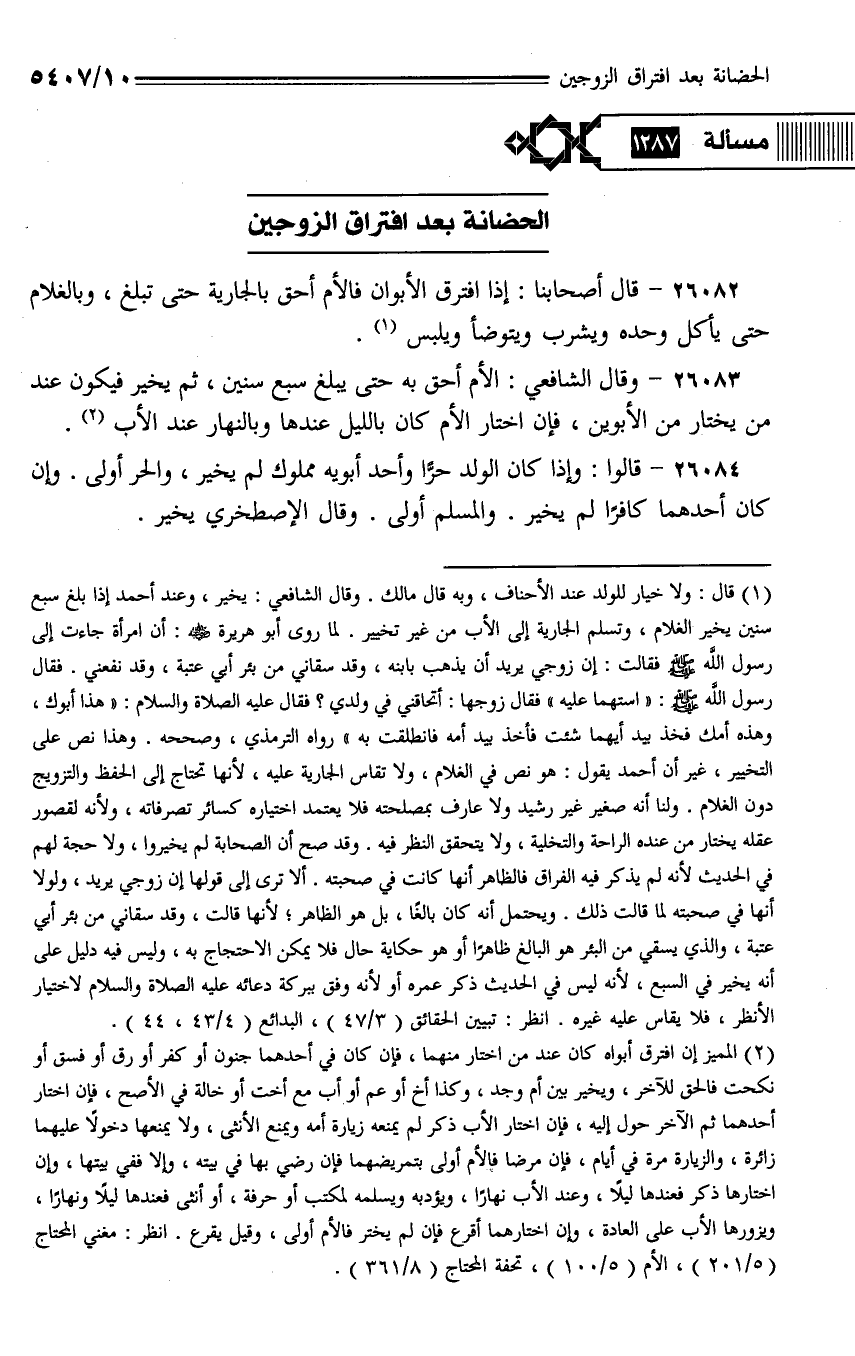 الحضانة بعد افتراق الزوجين ٥٤٠٧/١٠
مسألة ١٢٨٧
الحضانة بعد افتراق الزوجين
٢٦٠٨٢ - قال أصحابنا : إذا افترق الأبوان فالأم أحق بالجارية حتى تبلغ ، وبالغلام
حتى يأكل وحده ويشرب ويتوضأ ويلبس (١) .
٢٦٠٨٣ - وقال الشافعي : الأم أحق به حتى يبلغ سبع سنين ، ثم يخير فيكون عند
من يختار من الأبوين ، فإن اختار الأم كان بالليل عندها وبالنهار عند الأب (٢) .
٢٦٠٨٤ - قالوا : وإذا كان الولد حرًّا وأحد أبويه مملوك لم يخير ، والحر أولى . وإن
كان أحدهما كافرًا لم يخير . والمسلم أولى . وقال الإصطخري يخير .
(١) قال : ولا خيار للولد عند الأحناف ، وبه قال مالك . وقال الشافعي : يخير ، وعند أحمد إذا بلغ سبع
سنين يخير الغلام ، وتسلم الجارية إلى الأب من غير تخيير . لما روى أبو هريرة ﷺ : أن امرأة جاءت إلى
رسول اللَّه ﷺ فقالت : إن زوجي يريد أن يذهب بابنه ، وقد سقاني من بئر أبي عتبة ، وقد نفعني . فقال
رسول اللَّه ﷺ : « استهما عليه » فقال زوجها : أتحاقني في ولدي ؟ فقال عليه الصلاة والسلام : « هذا أبوك ،
وهذه أمك فخذ بيد أيهما شئت فأخذ بيد أمه فانطلقت به » رواه الترمذي ، وصححه . وهذا نص على
التخيير ، غير أن أحمد يقول : هو نص في الغلام ، ولا تقاس الجارية عليه ، لأنها تحتاج إلى الحفظ والتزويج
دون الغلام . ولنا أنه صغير غير رشيد ولا عارف بمصلحته فلا يعتمد اختياره كسائر تصرفاته ، ولأنه لقصور
عقله يختار من عنده الراحة والتخلية ، ولا يتحقق النظر فيه . وقد صح أن الصحابة لم يخيروا ، ولا حجة لهم
في الحديث لأنه لم يذكر فيه الفراق فالظاهر أنها كانت في صحبته . ألا ترى إلى قولها إن زوجي يريد ، ولولا
أنها في صحبته لما قالت ذلك . ويحتمل أنه كان بالغًا ، بل هو الظاهر ؛ لأنها قالت ، وقد سقاني من بئر أبي
عتبة ، والذي يسقي من البئر هو البالغ ظاهرًا أو هو حكاية حال فلا يمكن الاحتجاج به ، وليس فيه دليل على
أنه يخير في السبع ، لأنه ليس في الحديث ذكر عمره أو لأنه وفق ببركة دعائه عليه الصلاة والسلام لاختيار
الأنظر ، فلا يقاس عليه غيره . انظر : تبيين الحقائق ( ٤٧/٣ ) ، البدائع ( ٤٣/٤ ، ٤٤ ) .
(٢) المميز إن افترق أبواه كان عند من اختار منهما ، فإن كان في أحدهما جنون أو كفر أو رق أو فسق أو
نكحت فالحق للآخر ، ويخير بين أم وجد ، وكذا أخ أو عم أو أب مع أخت أو خالة في الأصح ، فإن اختار
أحدهما ثم الآخر حول إليه ، فإن اختار الأب ذكر لم يمنعه زيارة أمه ويمنع الأنثى ، ولا يمنعها دخولًا عليهما
زائرة ، والزيارة مرة في أيام ، فإن مرضا فالأم أولى بتمريضهما فإن رضي بها في بيته ، وإلا ففي بيتها ، وإن
اختارها ذكر فعندها ليلًا ، وعند الأب نهارًا ، ويؤدبه ويسلمه لمكتب أو حرفة ، أو أنثى فعندها ليلًا ونهارًا ،
ويزورها الأب على العادة ، وإن اختارهما أقرع فإن لم يختر فالأم أولى ، وقيل يقرع . انظر : مغني المحتاج
( ٢٠١/٥ ) ، الأم ( ١٠٠/٥ ) ، تحفة المحتاج ( ٣٦١/٨ ) .